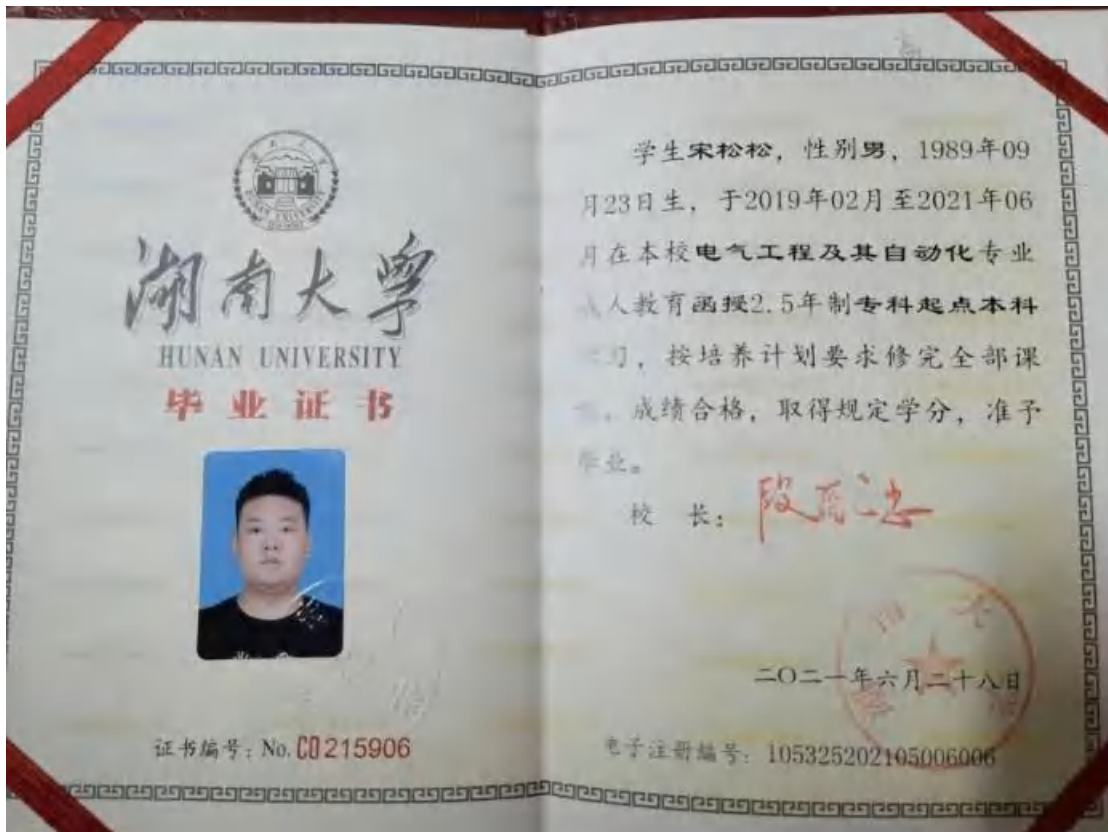 湖南大学
HUNAN UNIVERSITY
毕业证书
证书编号：No. CO 215906
学生宋松松，性别男，1989年09
月23日生，于2019年02月至2021年06
月在本校电气工程及其自动化专业
人教育函授2.5年制专科起点本科
习，按培养计划要求修完全部课
，成绩合格，取得规定学分，准予
毕业。
校 长：
二〇二一年六月二十八日
电子注册编号：105325202105006006